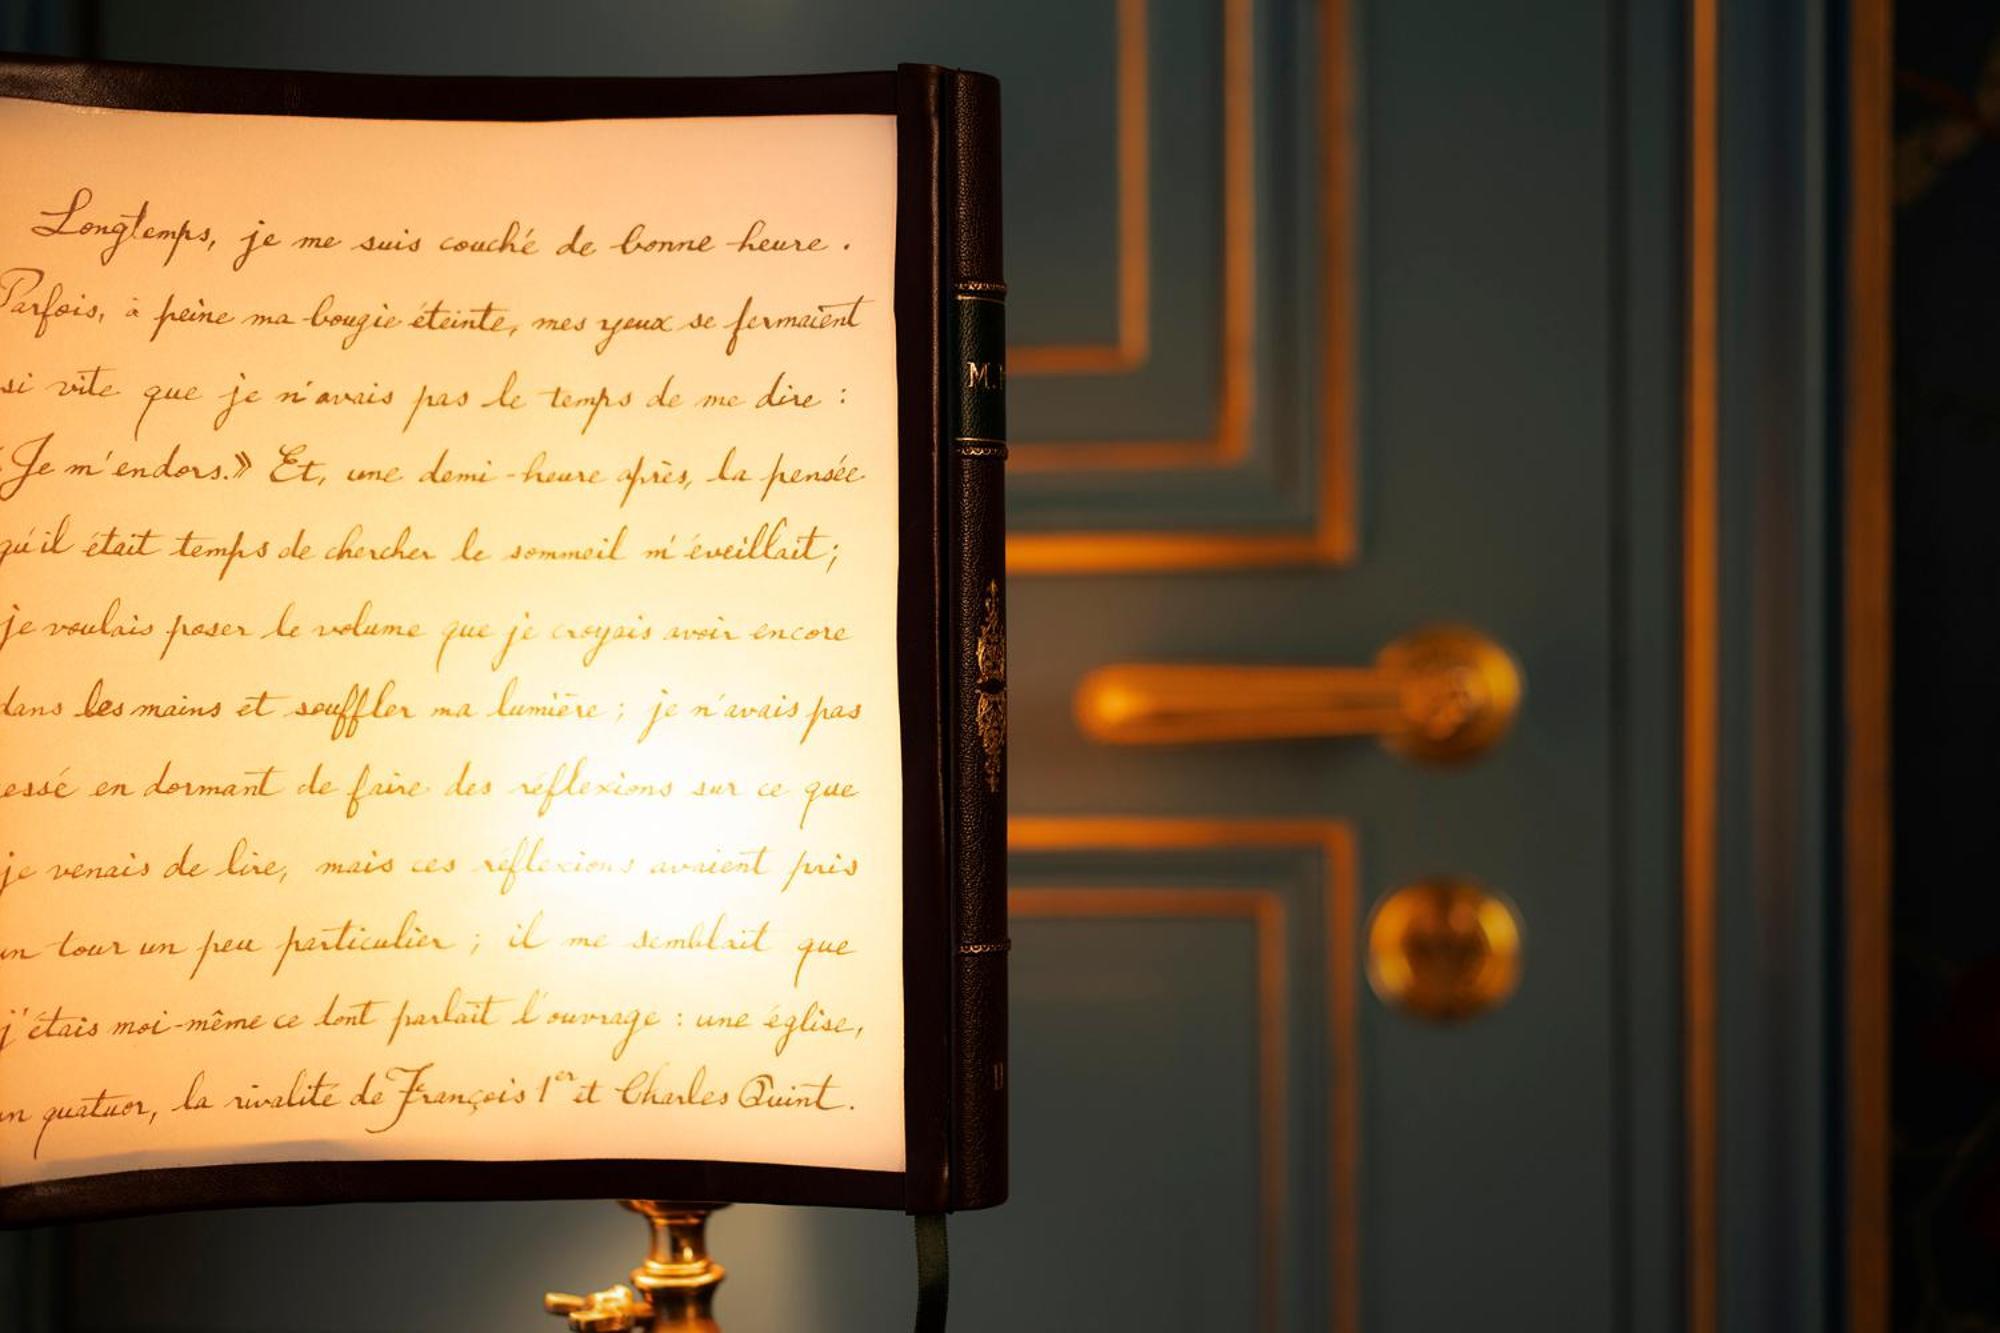 Longtemps, je me suis couché de bonne heure.
Parfois, à peine ma bougie éteinte, mes yeux se fermaient
si vite que je n'avais pas le temps de me dire :
Je m'endors.» Et, une demi-heure après, la pensée
qu'il était temps de chercher le sommeil m'éveillait;
je voulais poser le volume que je croyais avoir encore
dans les mains et souffler ma lumière ; je n'avais pas
essé en dormant de faire des réflexions sur ce que
je venais de lire, mais ces réflexions avaient pris
un tour un peu particulier ; il me semblait que
j'étais moi-même ce dont parlait l'ouvrage : une église,
un quatuor, la rivalité de François 1er et Charles Quint.
M.